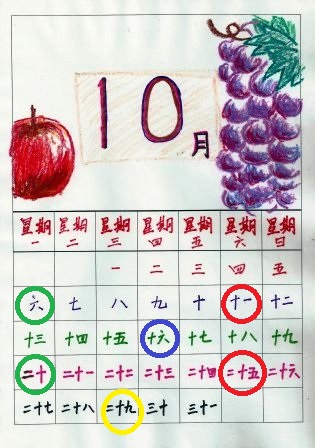 10月
星期一 星期二 星期三 星期四 星期五 星期六 星期日
一 二 三 四 五
六 七 八 九 十 十一 十二
十三 十四 十五 十六 十七 十八 十九
二十 二十一 二十二 二十三 二十四 二十五 二十六
二十七 二十八 二十九 三十 三十一